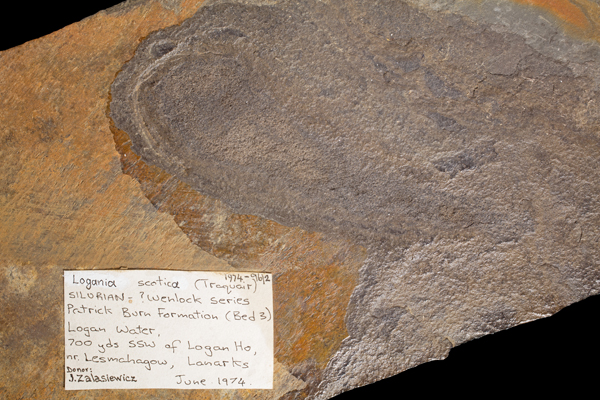 1974-96/2
Logania scotica (Traquair)
SILURIAN: ?Wenlock series
Patrick Burn Formation (Bed 3)
Logan Water,
700 yds SSW of Logan Ho,
nr. Lesmahagow, Lanarks
Donor:
J. Zalasiewicz June 1974.